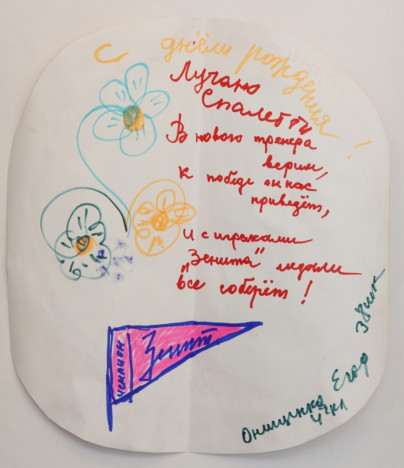 С днём рождения!
Лучано
Спалетти
В нового тренера
верим,
к победе он нас
приведёт,
и с игроками
"Зенита" медали
все соберёт!
Чемпион
Зенит
Онищенко Егор
4 кл